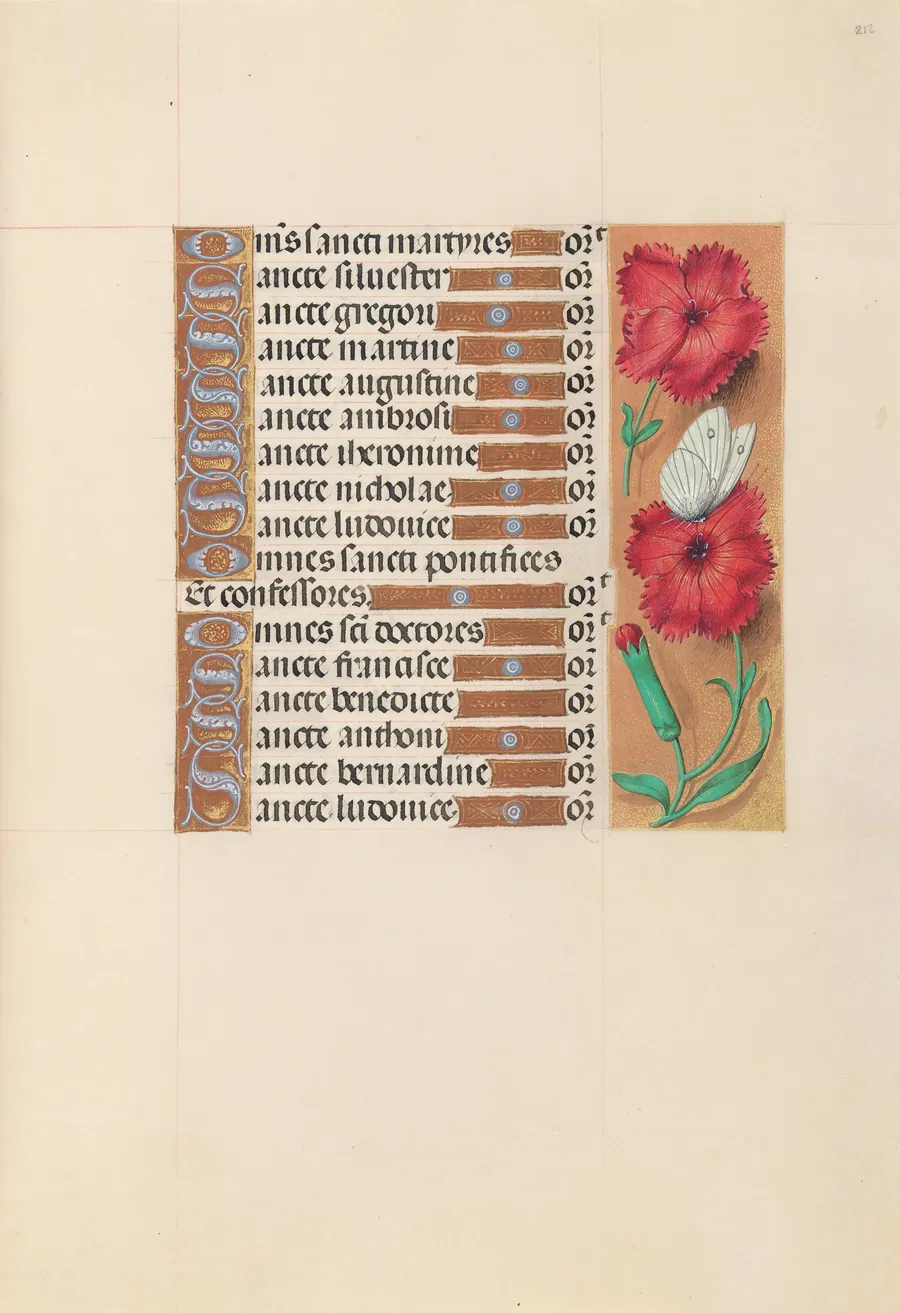 212
Om̄s sancti martyres or̄t
Sancte siluester or̄
Sancte gregori or̄
Sancte martine or̄
Sancte augustine or̄
Sancte ambrosi or̄
Sancte iheronime or̄
Sancte nicholae or̄
Sancte ludouice or̄
Omnes sancti pontifices
Et confessores. or̄t
Omnes sc̄i doctores or̄t
Sancte francisce or̄
Sancte benedicte or̄
Sancte anthoni or̄
Sancte bernardine or̄
Sancte ludouice or̄